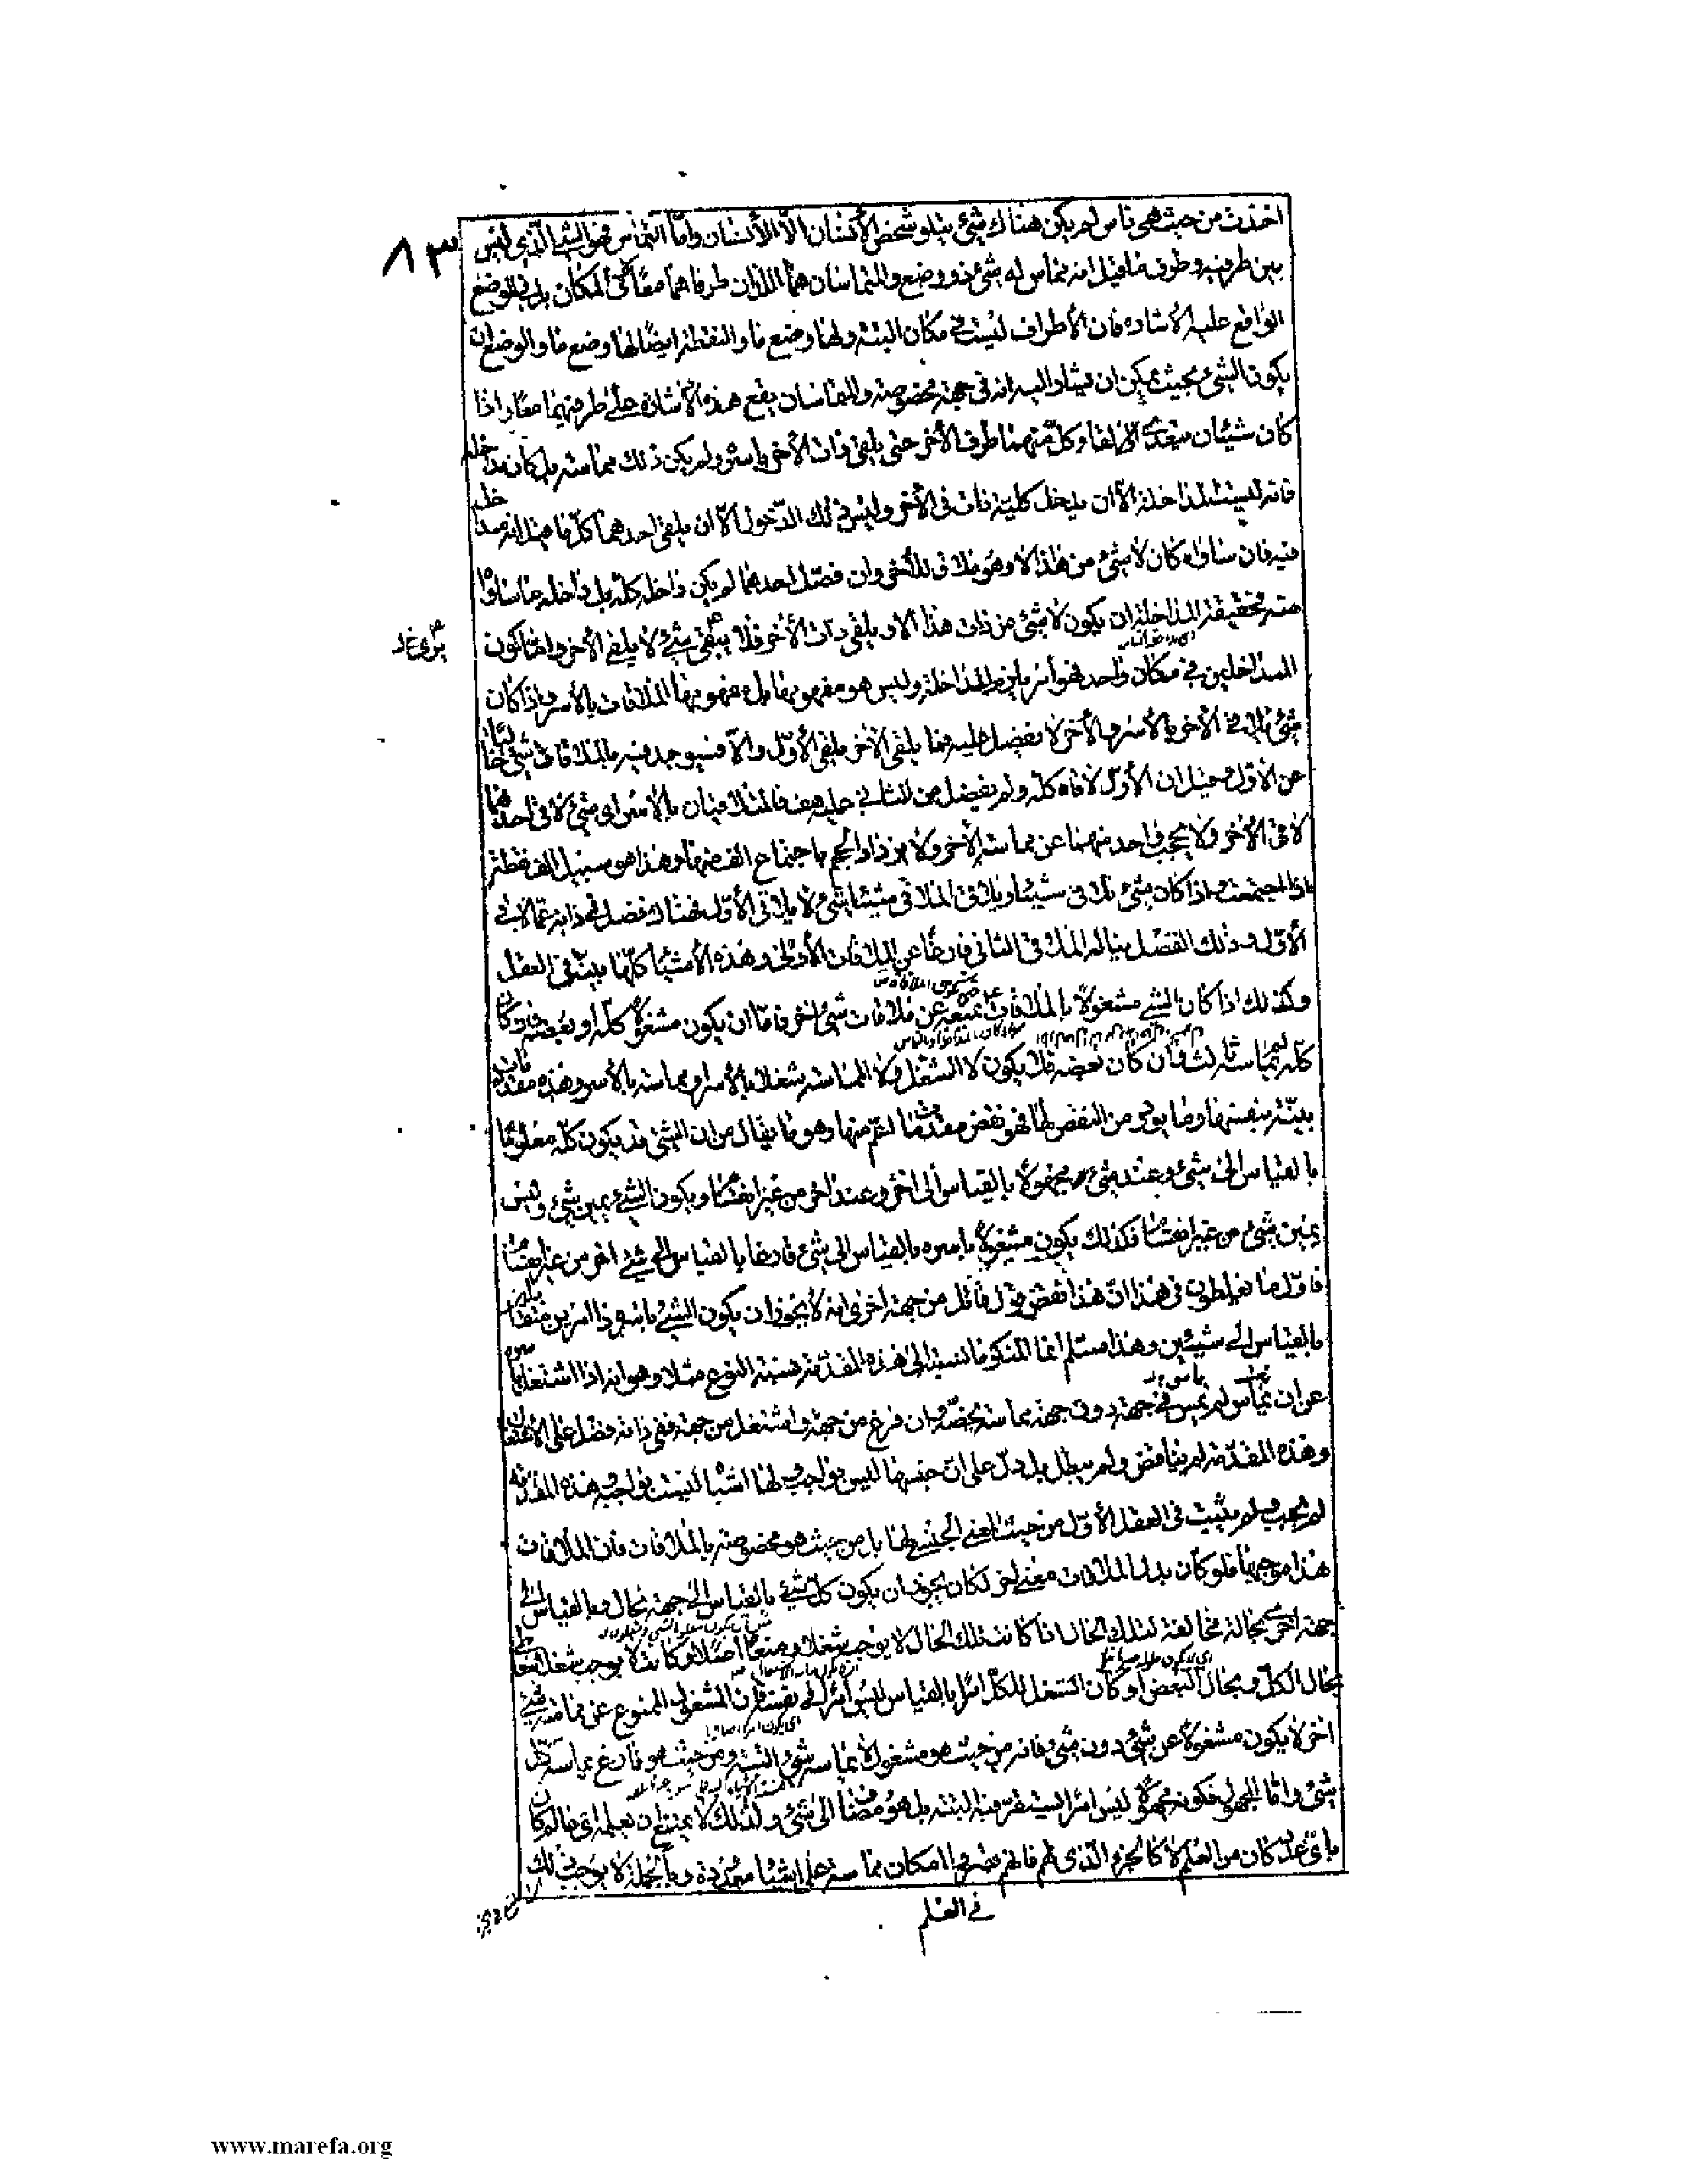 ٨٣
اخذت من حيث هى ناس لم يكن هناك شئ يتلو شخص الأنسان الّا الأنسان وامّا التماس فهو الشئ الّذى ليس
بين طرفيه وطرف ما قيل انه مماس له شئ ذو وضع والمتماسان هما اللذان طرفاهما معًا لا فى المكان بل فى الوضع
الواقع عليه الأشاره فان الأطراف ليست فى مكان البتة ولها وضع ما والنقطة ايضًا لها وضع ما والوضع ان
يكون الشئ بحيث يمكن ان يشار اليه انه فى جهة مخصوصة والمتماسان يقع هذه الأشارة على طرفيهما معًا واذا
كان شيئان يتعدى الألقاء كل منهما طرف الأخر حتى يلقى ذات الأخر باسره لم يكن ذلك مماسة بل كان مداخلة
فانه ليست المداخلة الّا ان يدخل كلية ذات فى الأخر وليس ذلك الدّخول الّا ان يلقى احدهما كلّ ما قيل انه مداخل
فيه فان ساواه كان لا شئ من هذا الا وهو ملاق للأخر وان فضل احدهما لم يكن داخله كله بل داخله ما ساواه
منه فحقيقة المداخلة ان يكون لا شئ من ذات هذا الا ويلقى ذات الأخر فلا يبقى شئ لا يلقى الأخر وامّا كون
المتداخلين فى مكان واحد فهو أمر يلزم المداخلة وليس هو مفهومها بل مفهومها الملاقات بالأسر واذا كان
شئ ملاق الأخر بالأسر والأخر لا يفضل عليه فما يلقى الأخر يلقى الأوّل والّا فسيوجد فيه بالملاقات شئ خاليًا
عن الأوّل وقيل ان الأوّل لاقاه كلّه ولم يفضل من الثانى عليه هف فالمتلاقيان بالأسر اى شئ لاقى احدهما
لاقى الأخر ولا يحجب واحد منهما عن مماسة الأخر ولا يزداد الحجم باجتماع الف منها وهذا هو سبيل الف نقطة
اذا اجتمعت واذا كان شئ يلاقى شيئًا ويلاقى الملاقى شيئًا شئ لا يلاقى الأوّل فهناك فضل فى ذاته عمّا لاقى
الأوّل وذلك الفضل يناله الملاقى الثانى فارغًا عن الملاقات الأولى وهذه الأشياء كلّها بيّن فى العقل
وكذلك اذا كان الشئ مشغولًا بالملاقات يمنعه عن ملاقات شئ اخر فامّا ان يكون مشغولًا كلّه او بعضه فان كان
كلّه لم يماس ثالث وان كان بعضه فلا يكون لا الشغل ولا المماسة شغلا بالأسر او مماسة بالأسر وهذه مقدمات
بيّنة بنفسها وما يورد من النقض لها فهو نقض مقدمة اعمّ منها وهو ما يقال من ان الشئ قد يكون كلّه معلومًا
بالقياس الى شئ وعند شئ ومجهولًا بالقياس الى اخر وعند اخر من غير انقسام ويكون الشئ يمين شئ وليس
يمين شئ من غير انقسام فكذلك يكون مشغولًا باسره بالقياس الى شئ فارغا بالقياس الى شئ اخر من غير انقسام
فاوّل ما يغلطون فى هذا انّ هذا نقض قول قائل من جهة اخرى انه لا يجوز ان يكون الشئ بانه ذا امرين متقابلين
بالقياس الى شيئين وهذا مسلم انما المنكر ما نسبته الى هذه المقدمة نسبة النوع مثلا وهو انه اذا اشتغل باسره
عن ان يماس لم يمس فى جهة دون جهة مماسة تخصّه وان فرغ من جهة واشتغل من جهة ففى ذاته فضل على الاشتغال
وهذه المقدّمة لم يناقض ولم يبطل بل دلّ على انّ جنسها ليس بواجب لها اشياء ليست بواجبة هذه المقدمة
لم يجب ولم يثبت فى العقل الأوّل من حيث المعنى الجنسى لها بل من حيث هو مخصوصة بالملاقات فان الملاقات
هذا موجبها فلو كان بدل الملاقات معنى اخر لكان يجوز ان يكون كلّ شئ بالقياس الى جهة بحال وبالقياس الى
جهة اخرى بحالة مخالفة لتلك الحال اذا كانت تلك الحال لا يوجب شغلًا ومنعًا اصلا او كانت لا يوجب شغلا
بحال الكلّ وبحال البعض او كان الشغل للكل امرًا بالقياس ليس امرًا فى نفسه فان المشغول الممنوع عن مماسة شئ
اخر لا يكون مشغولًا عن شئ دون شئ فانه من حيث هو مشغول لا يماسه شئ البتة ومن حيث هو فارغ يماسه كلّ
شئ وامّا المجهول فكونه مجهولًا ليس امرًا استقر فيه البتة بل هو مضاف الى شئ ولذلك لا يمتنع ان يعلمه اى عالم كان
باىّ عدد كان من العلم لا كالجزء الّذى لهم فانهم يضعوا امكان مماسة على اشياء معدودة وبالجملة لا يوجب ذلك
فى العلم
www.marefa.org